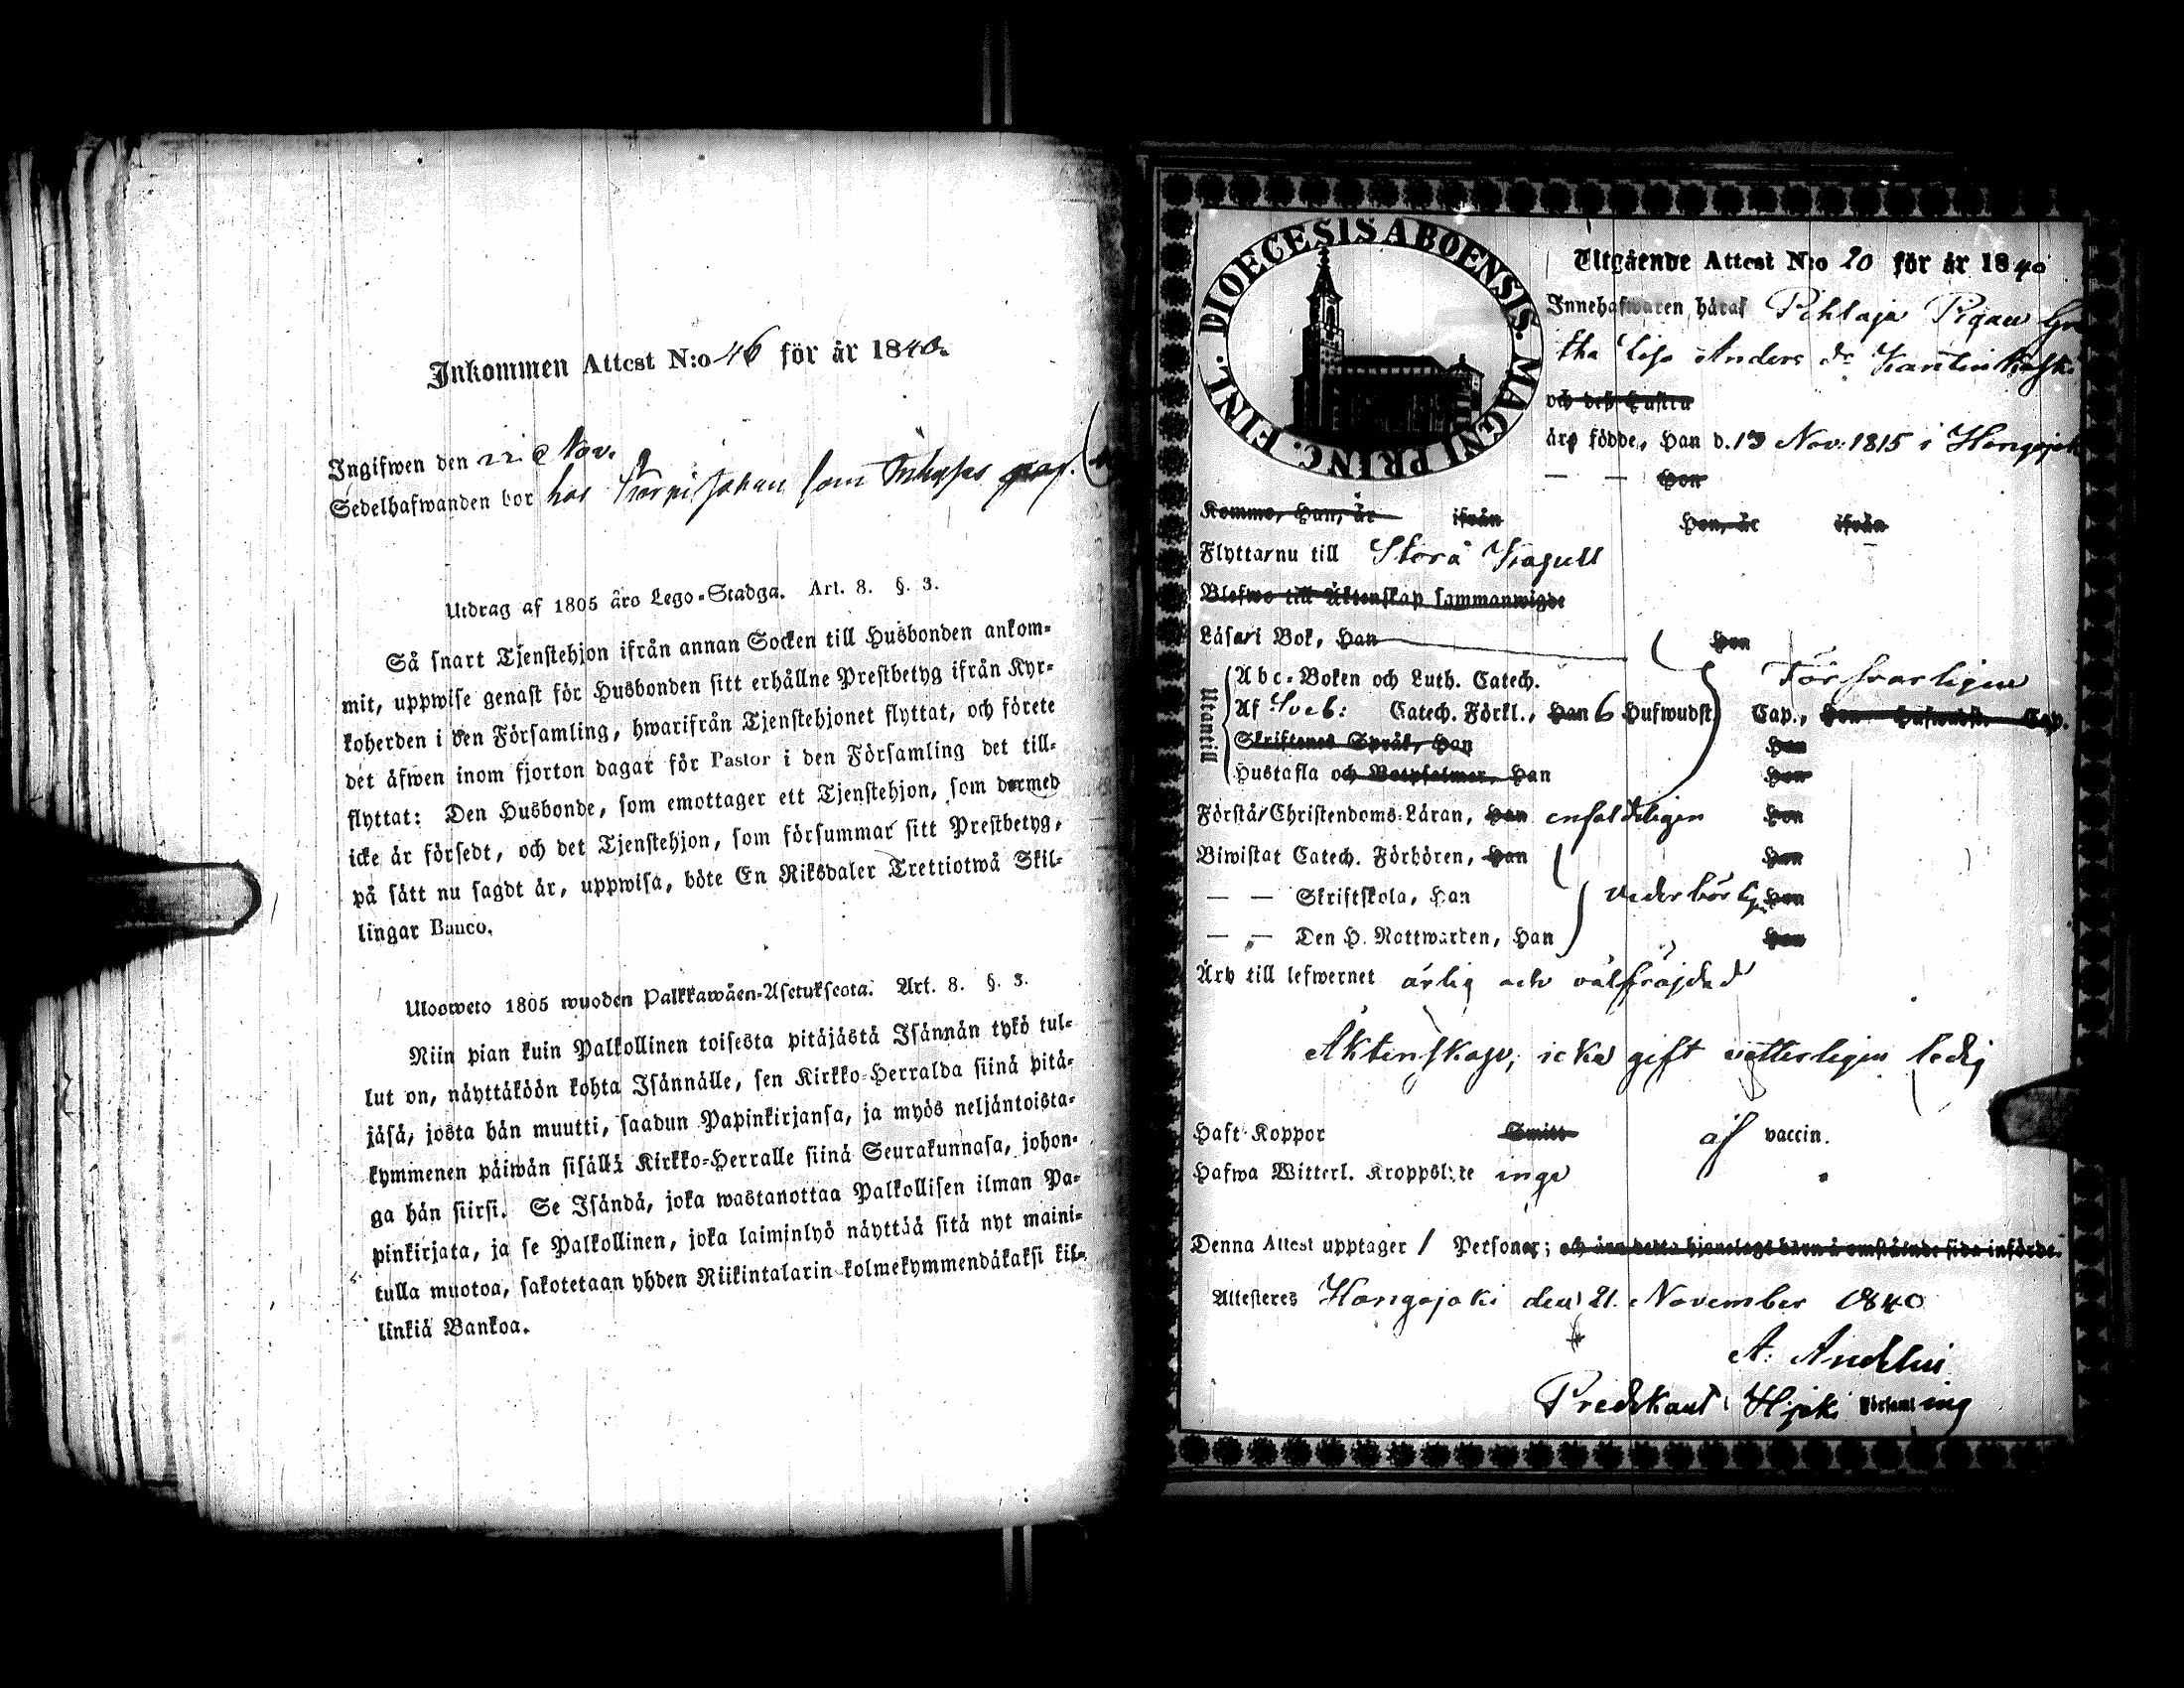 Inkommen Attest N:o 46 för år 1840.
Ingifwen den 22 Nov.
Sedelhafwanden bor hos Johan som
Utdrag af 1805 års Lego-Stadga. Art. 8. §. 3.
Så snart Tjenstehjon ifrån annan Socken till Husbonden ankom-
mit, uppwise genast för Husbonden sitt erhållne Prestbetyg ifrån Kyr-
koherden i den Församling, hwarifrån Tjenstehjonet flyttat, och förete
det äfwen inom fjorton dagar för Pastor i den Församling det till-
flyttat: Den Husbonde, som emottager ett Tjenstehjon, som dermed
icke är försedt, och det Tjenstehjon, som försummar sitt Prestbetyg,
på sätt nu sagdt är, uppwisa, böte En Riksdaler Trettiotwå Skil-
lingar Banco.
Uloosweto 1805 wuoden Palkkawäen-Asetuksesta. Art. 8. §. 3.
Niin pian kuin Palkollinen toisesta pitäjästä Isännän tykö tul-
lut on, näyttäköön kohta Isännälle, sen Kirkko-Herralda siinä pitä-
jäsä, josta hän muutti, saadun Papinkirjansa, ja myös neljäntoista-
kymmenen päiwän sisällä Kirkko-Herralle siinä Seurakunnasa, johon-
ga hän siirsi. Se Isändä, joka wastanottaa Palkollisen ilman Pa-
pinkirjata, ja se Palkollinen, joka laiminlyö näyttää sitä nyt maini-
tulla muotoa, sakotetaan yhden Riikintalarin kolmekymmendäkaksi kil-
linkiä Bankoa.
DIOECESIS ABOENSIS. MAGNI PRINC. FINL.
Utgående Attest N:o 20 för år 1840
Innehafwaren häraf Pihlaja Pigan Gre
tha Lisa Anders dr
och deß hustru
äro födde, Han d. 13 Nov. 1815 i Hongojoki
— — Hon
Komne, Han, år ifrån Hon, år ifrån
Flyttar nu till Storå Kapell
Blefwo till Äktenskap sammanwigde
Läser i Bok, Han Hon
Utantill
Abc-Boken och Luth. Catech. Försvarligen
Af Sveb: Catech. Förkl., Han 6 Hufwudst Cap., Hon Hufwudst. Cap.
Skriftenes Språk, Han Hon
Hustafla och Botpsalmer, Han Hon
Förstår Christendoms-Läran, Han enfaldeligen Hon
Biwistat Catech. Förhören, Han Hon
— — Skriftskola, Han vederbörligen Hon
— — Den H. Nattwarden, Han Hon
Äro till lefwernet ärlig och välfräjdad
Äktenskap, icke gift vetterligen ledig
Haft Koppor Smitt af vaccin.
Hafwa Witterl. Kroppslyte inga
Denna Attest upptager 1 Personer; och äro detta hjonelags barn å omstående sida införde.
Attesteres Hongojoki den 21. November 1840
A.
Predikant i Hjoki Församling